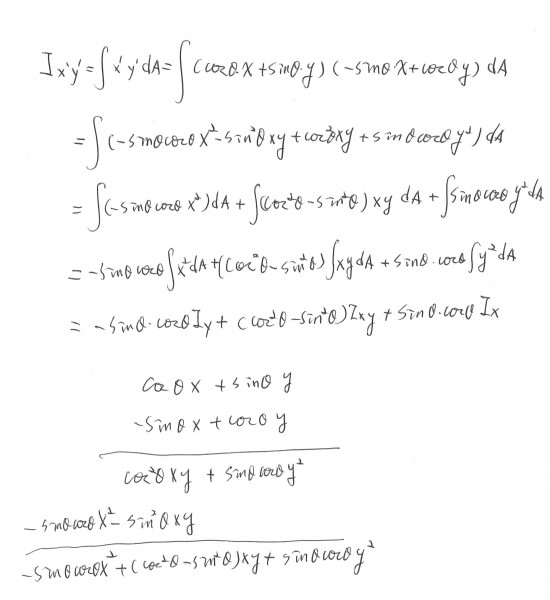 Ix'y' = ∫x'y'dA = ∫(cosθ·x + sinθ·y)(-sinθx + cosθy) dA
= ∫(-sinθcosθx² - sin²θxy + cos²θxy + sinθcosθy²) dA
= ∫(-sinθcosθx²)dA + ∫(cos²θ - sin²θ)xy dA + ∫sinθcosθy²dA
= -sinθcosθ∫x²dA + (cos²θ - sin²θ)∫xydA + sinθ·cosθ∫y²dA
= -sinθ·cosθIy + (cos²θ - sin²θ)Ixy + sinθ·cosθIx
cosθx + sinθy
-sinθx + cosθy
cos²θxy + sinθcosθy²
-sinθcosθx² - sin²θxy
-sinθcosθx² + (cos²θ - sin²θ)xy + sinθcosθy²